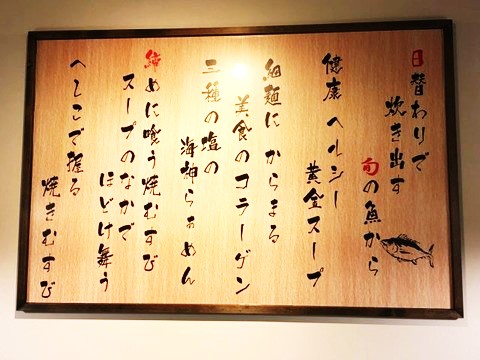 日替わりで
炊き出す
旬の魚から
健康 ヘルシー
黄金スープ
細麺にからまる
美食のコラーゲン
三種の塩の
海神らぁめん
締めに喰う焼むすび
スープのなかで
ほどけ舞う
へしこで握る
焼きむすび